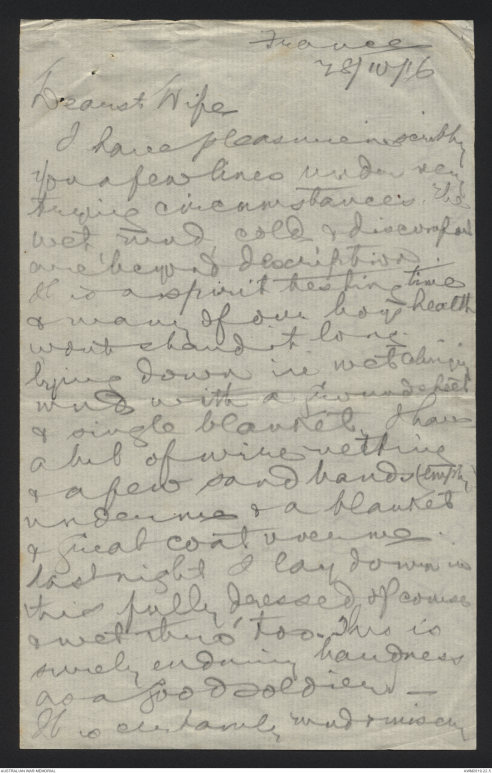 France
28/10/16
Dearest Wife
I have pleasure in scribbling
you a few lines under very
trying circumstances. The
wet mud, cold & discomfort
are beyond description.
It is a spirit testing time
& many of our boys health
wont stand it long.
lying down in wet clinging
mud with a groundsheet
& single blanket. I have
a bit of wire netting
& a few sand bands (empty)
under me & a blanket
& great coat over me.
Last night I lay down in
this fully dressed of course
& wet thro' too. This is
surely enduring hardness
as a good soldier —
It is certainly mud & misery
AUSTRALIAN WAR MEMORIAL